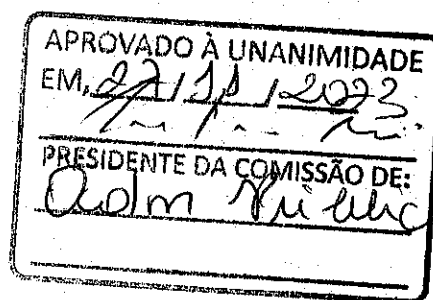 APROVADO À UNANIMIDADE
EM, 27/11/2023
PRESIDENTE DA COMISSÃO DE:
Adm Públic